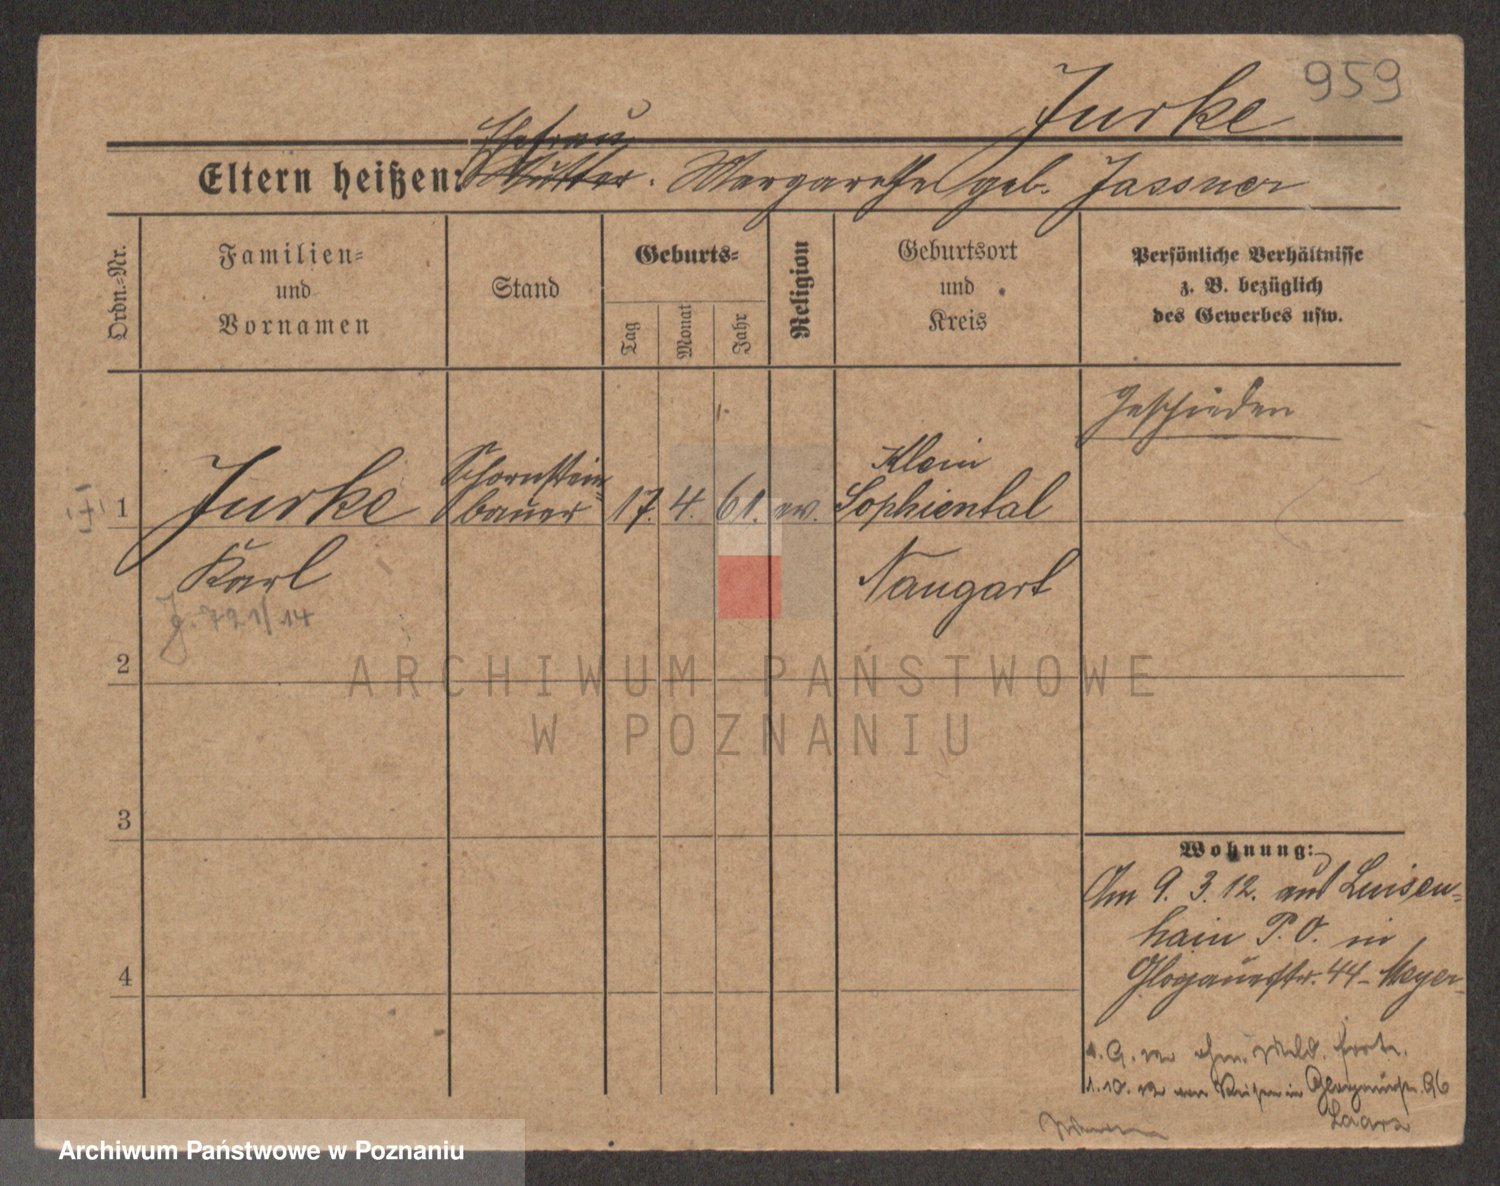 959
Jurke
Ehefrau
Eltern heißen: Mutter. Margarethe geb. Jassner
Ordn.-Nr.
Familien-
und
Vornamen
Stand
Geburts-
Tag
Monat
Jahr
Religion
Geburtsort
und
Kreis
Persönliche Verhältnisse
z. B. bezüglich
des Gewerbes usw.
geschieden
1 Jurke Schornstein- 17. 4. 61. ev. Klein
bauer Sophiental
Karl Naugart
J. 721/14
2
ARCHIWUM PAŃSTWOWE
W POZNANIU
3
Wohnung:
Am 9. 3. 12. aus Luisen-
hain P. O. in
Glogauerstr. 44 - Meyer
4
1. 9. 12 ohne Meld. fort.
1. 10. 12 von Reisen in 96
Archiwum Państwowe w Poznaniu